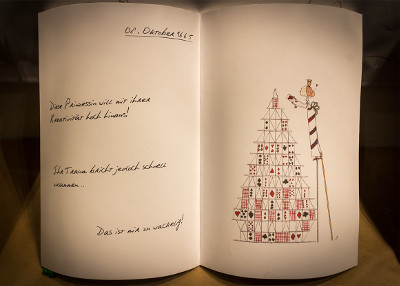 08. Oktober 1665
Diese Prinzessin will mit ihrer
Kreativität hoch hinaus!
Ihr Traum bricht jedoch schnell
zusammen...
Das ist mir zu wackelig!